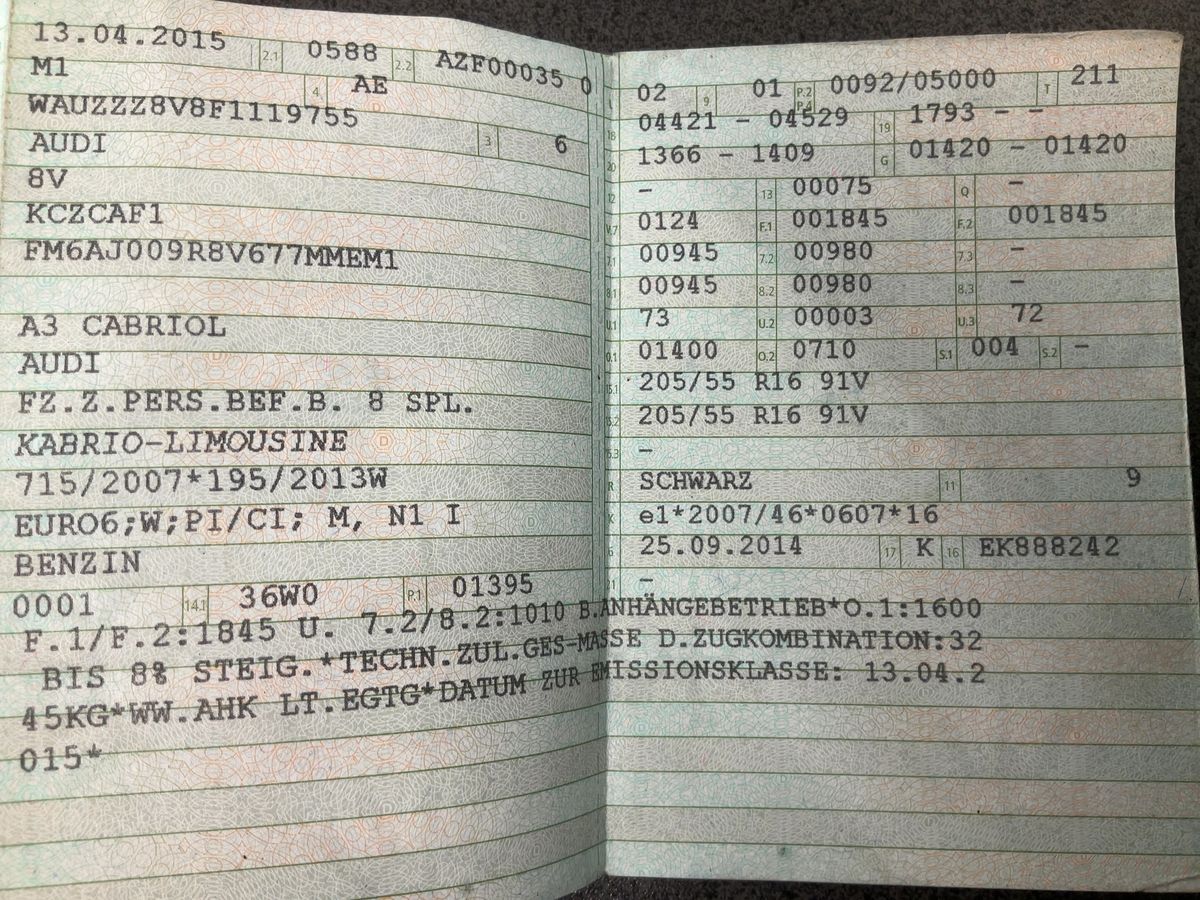 13.04.2015 2.1 0588 2.2 AZF00035 0
M1 4 AE
WAUZZZ8V8F1119755
AUDI 3 6
8V
KCZCAF1
FM6AJ009R8V677MMEM1
A3 CABRIOL
AUDI
FZ.Z.PERS.BEF.B. 8 SPL.
KABRIO-LIMOUSINE
715/2007*195/2013W
EURO6;W;PI/CI; M, N1 I
BENZIN
0001 14.1 36W0 P.1 01395
L 02 9 01 P.2 P.4 0092/05000 T 211
18 04421 - 04529 19 1793 - -
20 1366 - 1409 G 01420 - 01420
12 - 13 00075 Q -
V.7 0124 F.1 001845 F.2 001845
7.1 00945 7.2 00980 7.3 -
8.1 00945 8.2 00980 8.3 -
U.1 73 U.2 00003 U.3 72
O.1 01400 O.2 0710 S.1 004 S.2 -
15.1 205/55 R16 91V
15.2 205/55 R16 91V
15.3 -
R SCHWARZ 11 9
K e1*2007/46*0607*16
6 25.09.2014 17 K 16 EK888242
21 -
F.1/F.2:1845 U. 7.2/8.2:1010 B.ANHÄNGEBETRIEB*O.1:1600
BIS 8% STEIG.*TECHN.ZUL.GES-MASSE D.ZUGKOMBINATION:32
45KG*WW.AHK LT.EGTG*DATUM ZUR EMISSIONSKLASSE: 13.04.2
015*